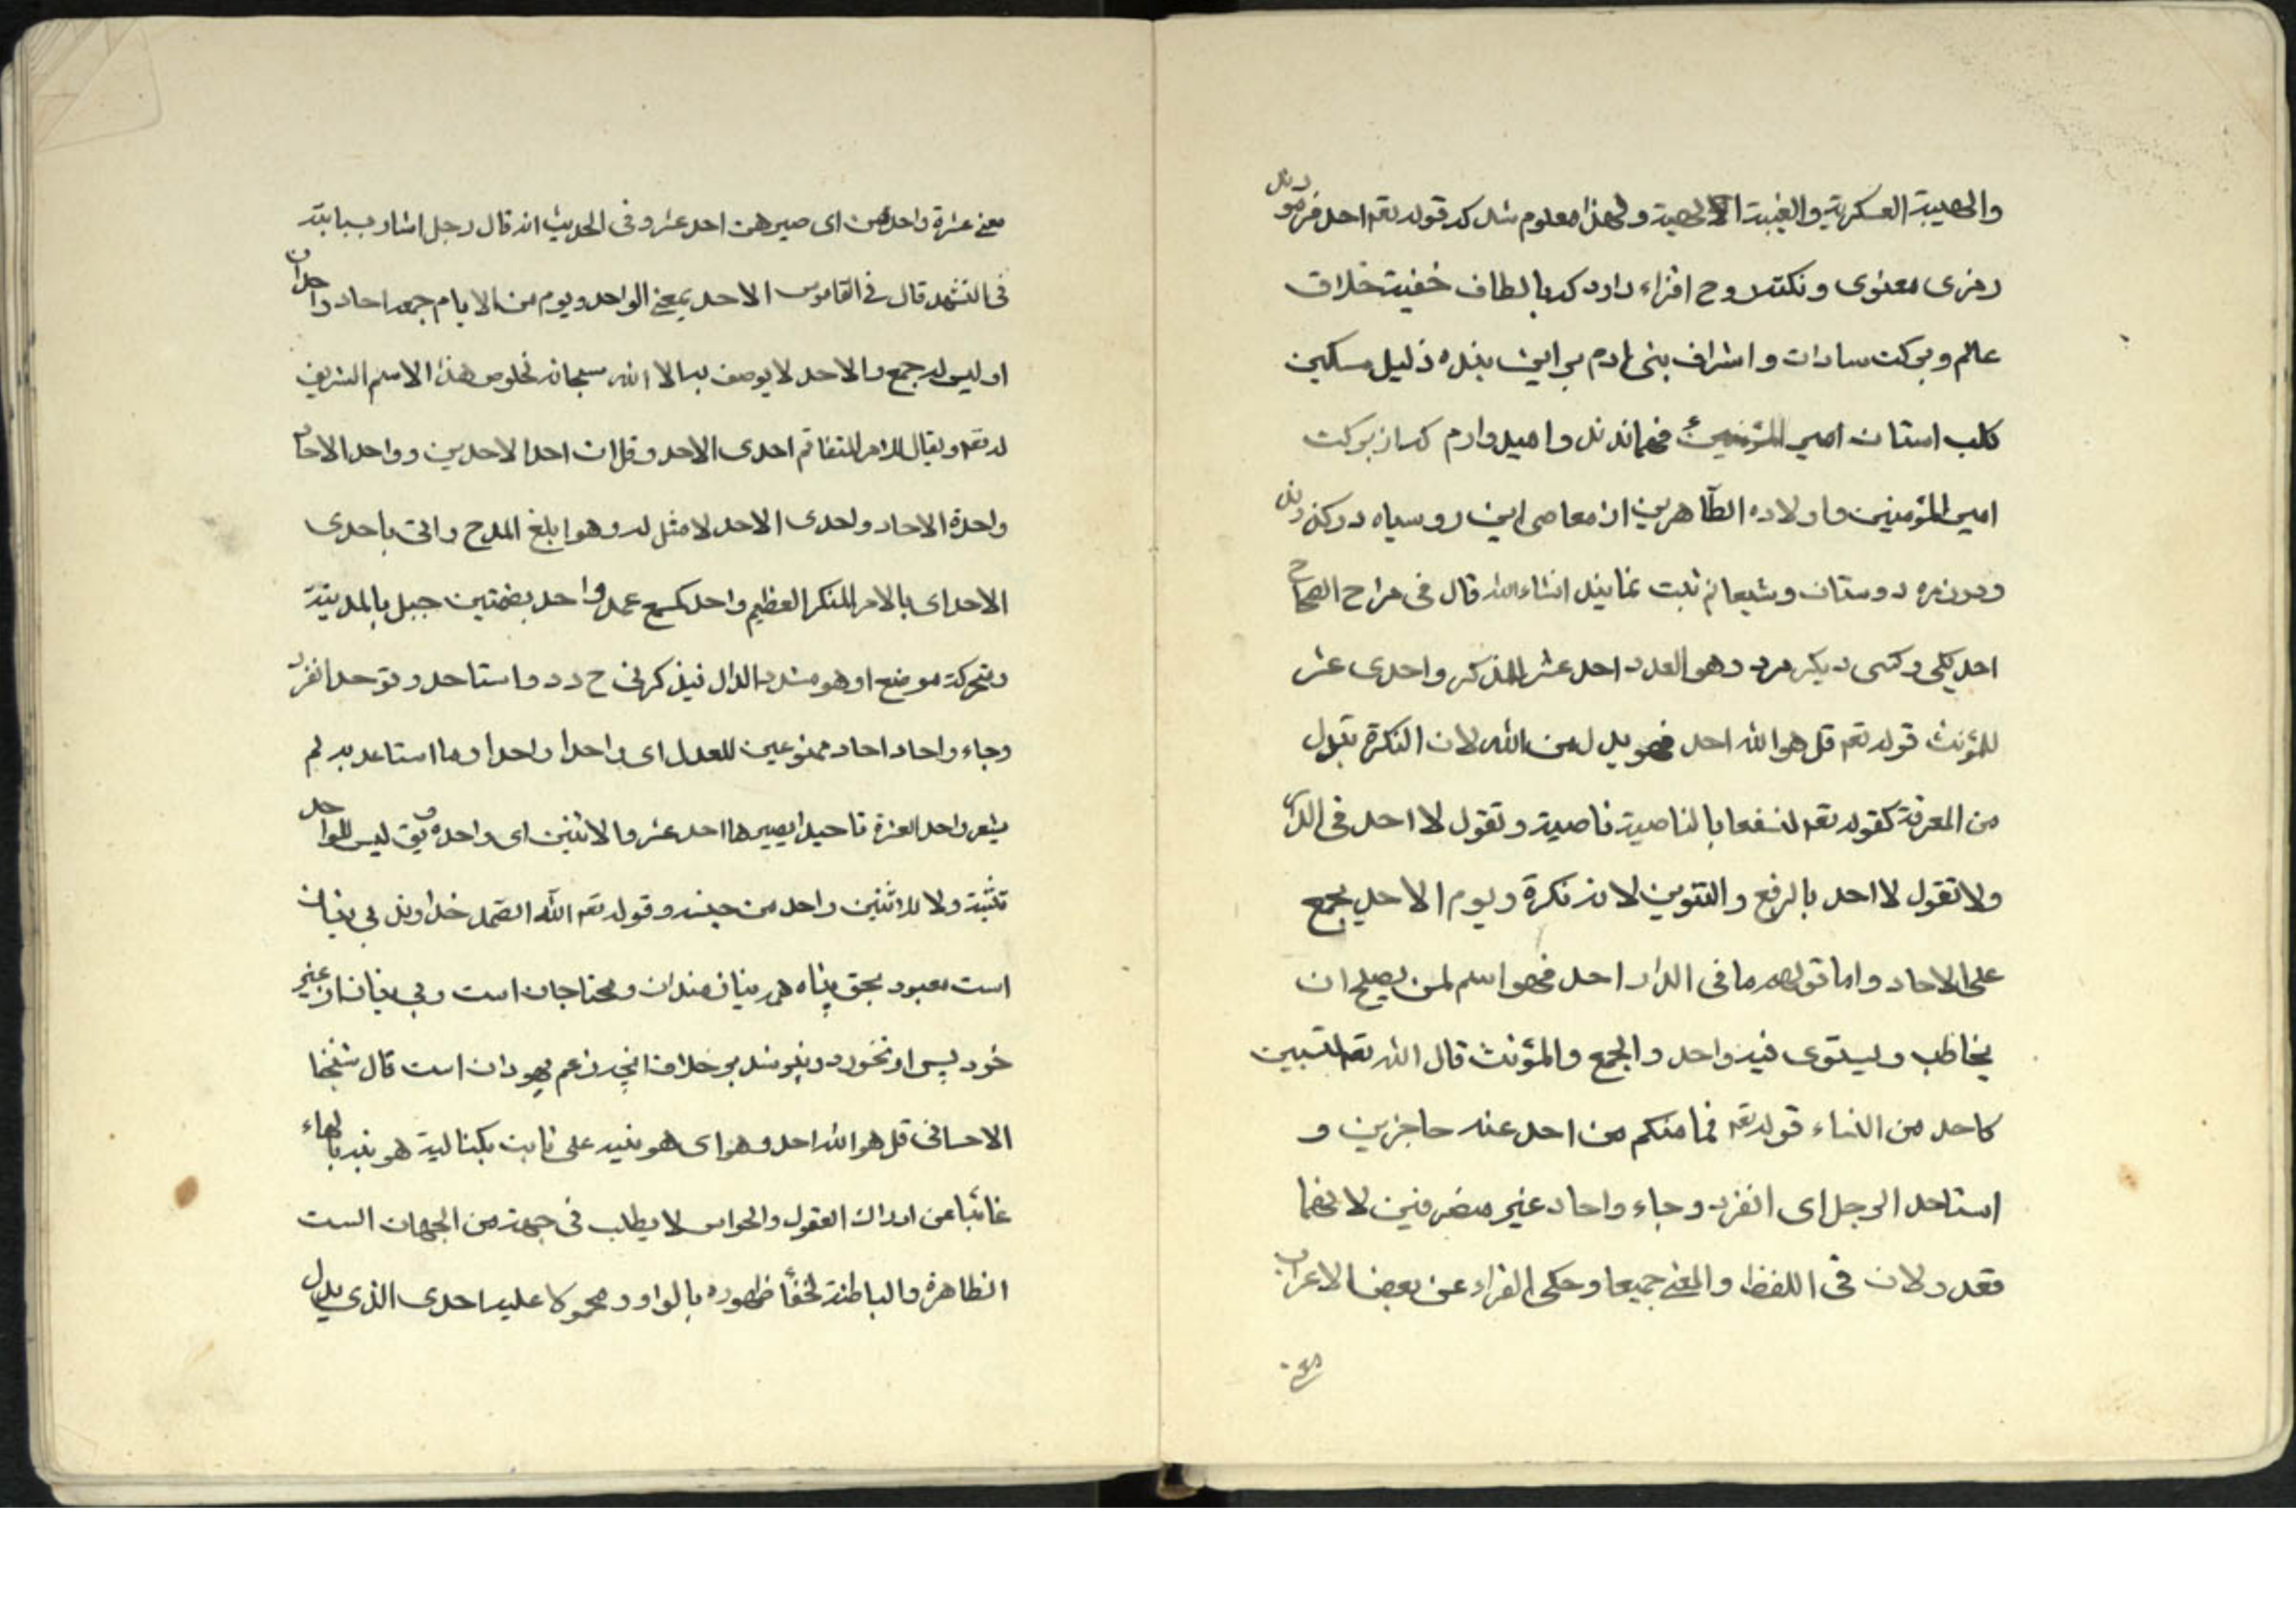 والهیبة العسکریة والغیبة الالهیة ولهذا معلوم شد که قوله تعم احد فرمودند
رمزی معنوی و نکته روح افزاء دارد که بالطاف خفیه خلاق
عالم و برکت سادات و اشراف بنی ادم بر این بنده ذلیل مسکین
کلب استان امیر المؤمنین فهماندند و امیدوارم که از برکت
امیر المؤمنین و اولاده الطاهرین از معاصی این روسیاه درکذرند
و در زمره دوستان و شیعانم ثبت نمایند انشاء الله قال فی صراح الصحاح
احد یکی و کسی دیکر مرد وهو العدد احد عشر للمذکر واحدی عشر
للمؤنث قوله تعم قل هو الله احد فهو بدل من الله لان النکرة تبدل
من المعرفة کقوله تعم لنسفعا بالناصیة ناصیة وتقول لا احد فی الدار
ولا تقول لا احد بالرفع والتنوین لانه نکرة ویوم الاحد یجمع
علی الاحاد واما قولهم ما فی الدار احد فهو اسم لمن یصلح ان
یخاطب ویستوی فیه واحد والجمع والمؤنث قال الله تعم لستین
کاحد من النساء قوله تعم فما منکم من احد عنه حاجزین و
استاحد الرجل ای انفرد وجاء واحاد غیر مصرفین لانهما
معدولان فی اللفظ والمعنی جمیعا وحکی الفراء عن بعض الاعراب
معی عشرة واحدهن ای صیرهن احد عشر وفی الحدیث انه قال رجل اشار بسبابته
فی التشهد قال فی القاموس الاحد بمعنی الواحد ویوم من الایام جمعه احاد واحدان
او لیس له جمع والاحد لا یوصف به الا الله سبحانه لخلوص هذا الاسم الشریف
له تعم ویقال للامر المتفاقم احدی الاحد وفلان احد الاحدین وواحد الاحاد
واحدة الاحاد واحدی الاحد لا مثل له وهو ابلغ المدح واتی باحدی
الاحد ای بالامر المنکر العظیم واحد کسمع عمد واحد بضمتین جبل بالمدینة
ومتحرکة موضع او هو مشدد الدال فیذکر فی ح د د واستاحد وتوحد انفرد
وجاء واحاد احاد ممنوعین للعدل ای واحدا واحدا وما استاحد به لم
یشعر واحد العشرة تاحیدا یصیرها احد عشر والاثنین ای واحدة ویق لیس للواحد
تثنیة ولا للاثنین واحد من جنسه وقوله تعم الله الصمد خداوند بی نیاز
است معبود بحق پناه همه نیازمندان و محتاجان است و بی نیاز از غیر
خود پس او نخورد و ننوشد بر خلاف انچه زعم یهودان است قال شیخنا
الاحسائی قل هو الله احد وهو ای هو نبیه علی ثابت بکینالیة هو نبه بالهاء
غائبا عن ادراک العقول والحواس لا یطلب فی جهة من الجهات الست
الظاهرة والباطنة لحفأ ظهوره بالواو ومحمولا علیه احدی الذی یدل